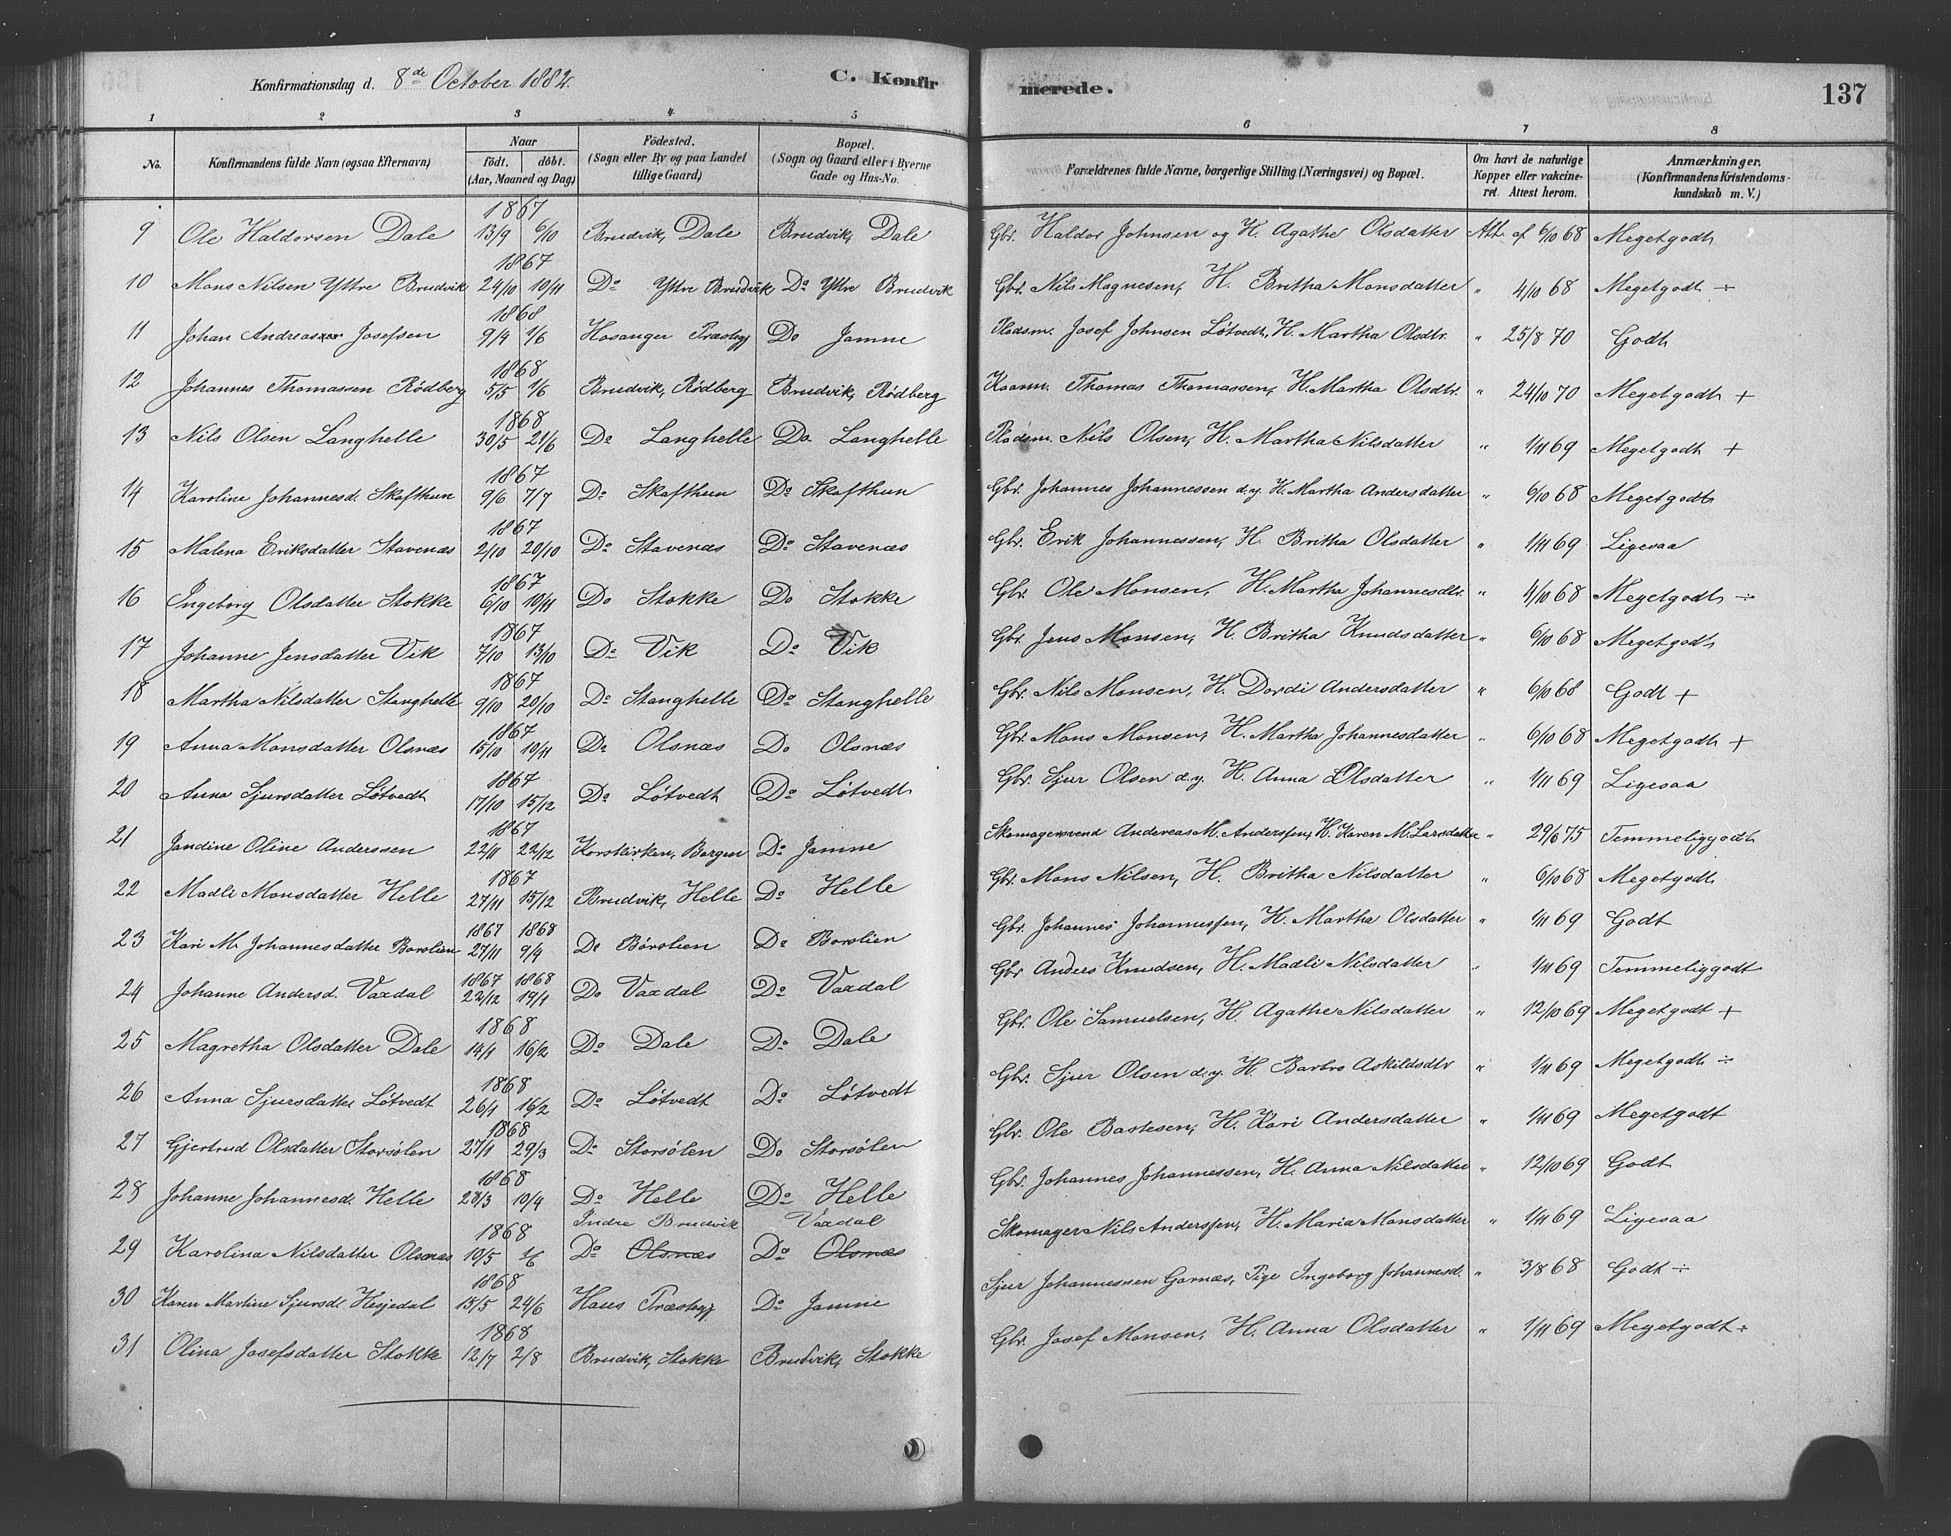 Konfirmationsdag d. 8de October 1882.
C. Konfirmerede.
137
1 2 3 4 5 6 7 8
No. Konfirmandens fulde Navn (ogsaa Efternavn) Naar født. døbt. (Aar, Maaned og Dag) Fødested. (Sogn eller By og paa Landet tillige Gaard) Bopæl. (Sogn og Gaard eller i Byerne Gade og Hus-No. Forældrenes fulde Navne, borgerlige Stilling (Næringsvei) og Bopæl. Om havt de naturlige Kopper eller vakcineret. Attest herom. Anmærkninger. (Konfirmandens Kristendomskundskab m. V.)
9 Ole Haldorsen Dale 1867 13/9 6/10 Brudvik, Dale Brudvik, Dale Gbr. Haldor Johnsen og H. Agathe Olsdatter Att. af 6/10 68 Megetgodt
10 Mons Nilsen Yttre Brudvik 1867 24/10 10/11 Do Yttre Brudvik Do Yttre Brudvik Gbr. Nils Magnesen, H. Britha Monsdatter " 4/10 68 Megetgodt ÷
11 Johan Andreas Josefsen 1868 9/4 1/6 Hosanger Præstegj Do Jamne Pladsm. Josef Johnsen Løtvedt, H. Martha Olsdtr. " 25/8 70 Godt
12 Johannes Thomassen Rødberg 1868 5/5 1/6 Brudvik, Rødberg Brudvik, Rødberg Kaarm. Thomas Thomassen, H. Martha Olsdtr. " 24/10 70 Megetgodt +
13 Nils Olsen Langhelle 1868 30/5 21/6 Do Langhelle Do Langhelle Pladsm. Nils Olsen, H. Martha Nilsdatter " 1/11 69 Megetgodt +
14 Karoline Johannesd. Skafthun 1867 9/6 7/7 Do Skafthun Do Skafthun Gbr. Johannes Johannessen d.y. H. Martha Andersdatter " 6/10 68 Megetgodt
15 Malena Eriksdatter Stavenæs 1867 2/10 20/10 Do Stavenæs Do Stavenæs Gbr. Erik Johannessen, H. Britha Olsdatter " 1/11 69 Ligesaa
16 Ingeborg Olsdatter Stokke 1867 6/10 10/11 Do Stokke Do Stokke Gbr. Ole Monsen, H. Martha Johannesdtr. " 4/10 68 Megetgodt ÷
17 Johanne Jensdatter Vik 1867 7/10 13/10 Do Vik Do Vik Gbr. Jens Monsen, H. Britha Knudsdatter " 6/10 68 Megetgodt
18 Martha Nilsdatter Stanghelle 1867 9/10 20/10 Do Stanghelle Do Stanghelle Gbr. Nils Monsen, H. Dordi Andersdatter " 6/10 68 Godt +
19 Anna Monsdatter Olsnæs 1867 15/10 10/11 Do Olsnæs Do Olsnæs Gbr. Mons Monsen, H. Martha Johannesdatter " 6/10 68 Megetgodt +
20 Anna Sjursdatter Løtvedt 1867 17/10 15/12 Do Løtvedt Do Løtvedt Gbr. Sjur Olsen d.y. H. Anna Olsdatter " 1/11 69 Ligesaa
21 Jandine Oline Anderssen 1867 22/11 22/12 Korskirken, Bergen Do Jamne Skomagersvend Andreas M. Anderssen, H. Karen M. Larsdatter " 29/6 75 Temmeliggodt
22 Madli Monsdatter Helle 1867 27/11 15/12 Brudvik, Helle Do Helle Gbr. Mons Nilsen, H. Britha Nilsdatter " 6/10 68 Megetgodt
23 Kari M. Johannesdatter Borslien 1867 1868 27/11 9/4 Do Børslien Do Borslien Gbr. Johannes Johannessen, H. Martha Olsdatter " 1/11 69 Godt
24 Johanne Andersd. Vaxdal 1867 1868 22/12 19/1 Do Vaxdal Do Vaxdal Gbr. Anders Knudsen, H. Madli Nilsdatter " 1/11 69 Temmeliggodt
25 Magretha Olsdatter Dale 1868 14/1 16/2 Do Dale Do Dale Gbr. Ole Samuelsen, H. Agathe Nilsdatter " 12/10 69 Megetgodt +
26 Anna Sjursdatter Løtvedt 1868 26/1 16/2 Do Løtvedt Do Løtvedt Gbr. Sjur Olsen d.y. H. Barbro Askildsdtr " 1/11 69 Megetgodt ÷
27 Gjertrud Olsdatter Storsølen 1868 27/1 29/3 Do Storsølen Do Storsølen Gbr. Ole Bastesen, H. Kari Andersdatter " 1/11 69 Megetgodt
28 Johanne Johannesd. Helle 1868 28/3 10/4 Do Helle Do Helle Gbr. Johannes Johannessen, H. Anna Nilsdatter " 12/10 69 Godt
29 Karolina Nilsdatter Olsnæs 1868 10/5 1/6 Do Indre Brudvik Olsnæs Do Vaxdal Olsnæs Skomager Nils Anderssen, H. Maria Monsdatter " 1/11 69 Ligesaa
30 Karen Martine Sjursd. Hesjedal 1868 15/5 24/6 Haus Præstegj Do Jamne Sjur Johannessen Garnæs, Pige Ingeborg Johannesd. " 3/8 68 Godt ÷
31 Olina Josefsdatter Stokke 1868 12/7 2/8 Brudvik, Stokke Brudvik, Stokke Gbr. Josef Monsen, H. Anna Olsdatter " 1/11 69 Megetgodt ÷